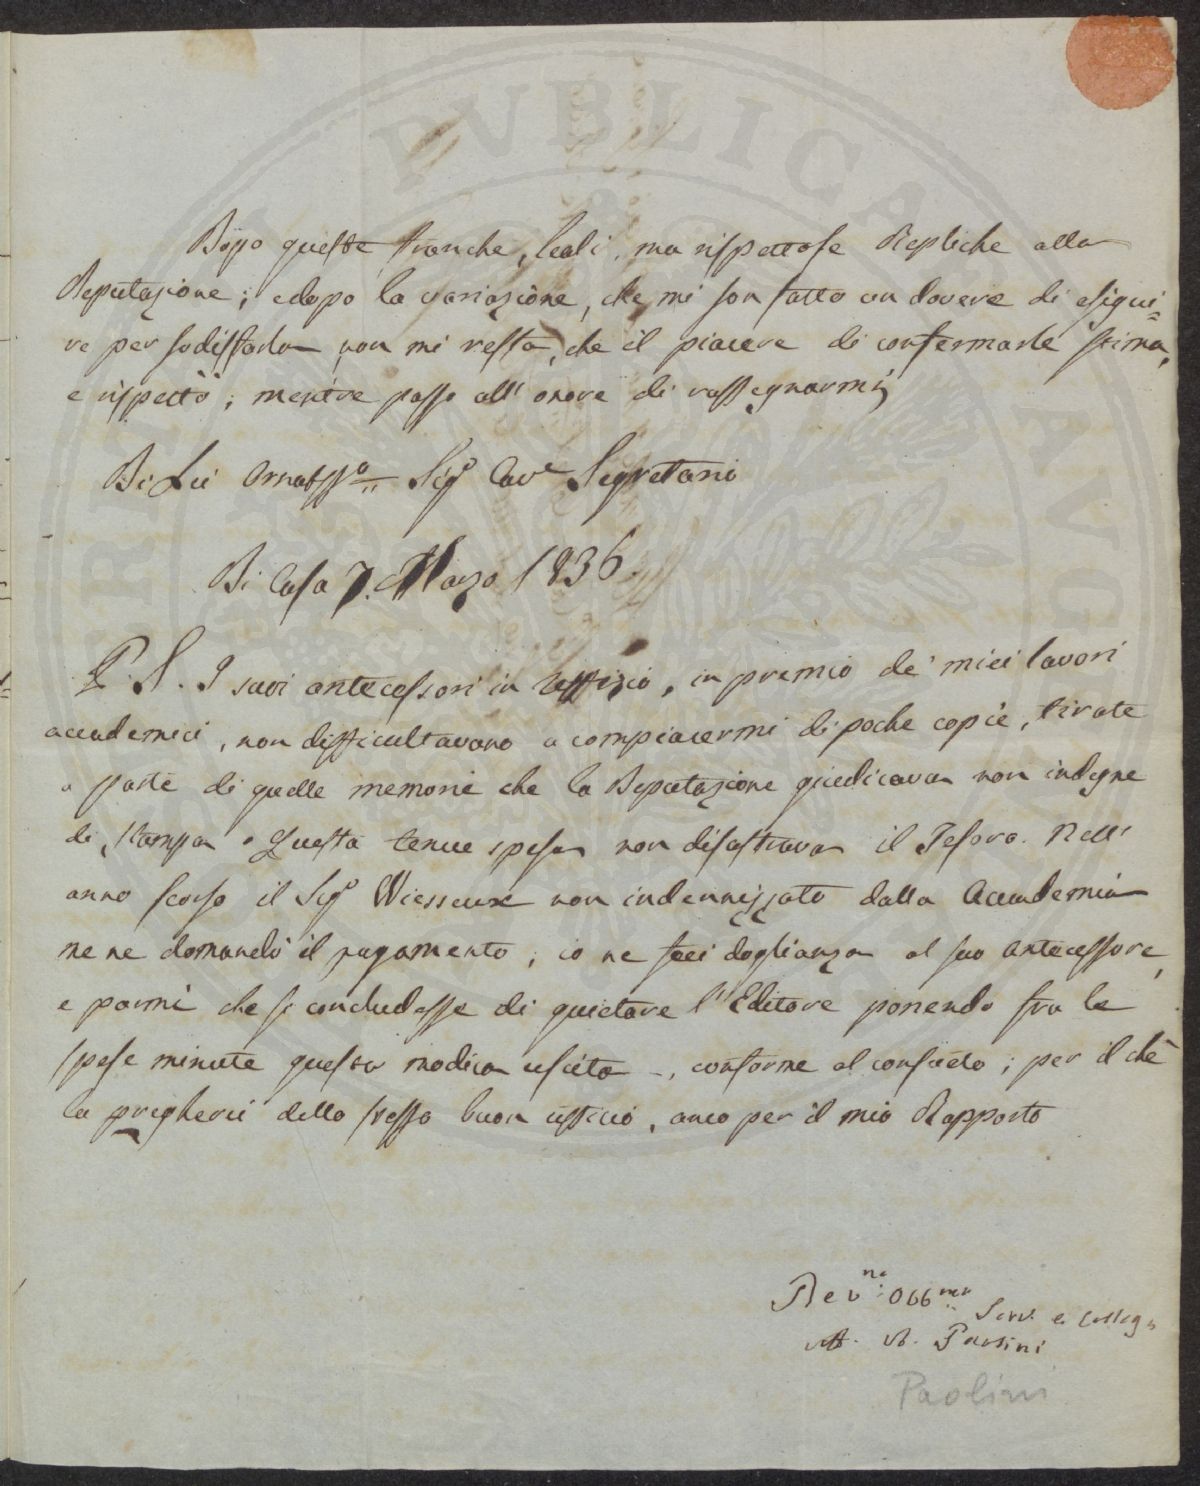 Dopo queste franche, leali, ma rispettose Repliche alla
Deputazione; e dopo la variazione, che mi son fatto un dovere di esegui=
re per sodisfarla non mi resta, che il piacere di confermarle stima,
e rispetto; mentre passo all'onore di rassegnarmi
Di Lei Ornatss.o Sig.r Cav.e Segretario
Di Casa 7. Marzo 1836
P. S. I suoi antecessori in Uffizio, in premio de' miei lavori
accademici, non difficultavano a compiacermi di poche copie, tirate
a parte di quelle memorie che la Deputazione giudicava non indegne
di stampa. Questa tenue spesa non disastrava il Tesoro. Nell'
anno scorso il Sig.r Wiesseux non indennizzato dalla Accademia
me ne domandò il pagamento; io ne feci doglianza al suo antecessore,
e parmi che si concludesse di quietare l'Editore ponendo fra le
spese minute questa modica uscita, conforme al consueto; per il chè
la pregherei dello stesso buon ufficio, anco per il mio Rapporto
Dev.mo Obb.mo Serv. e Collega
Paolini